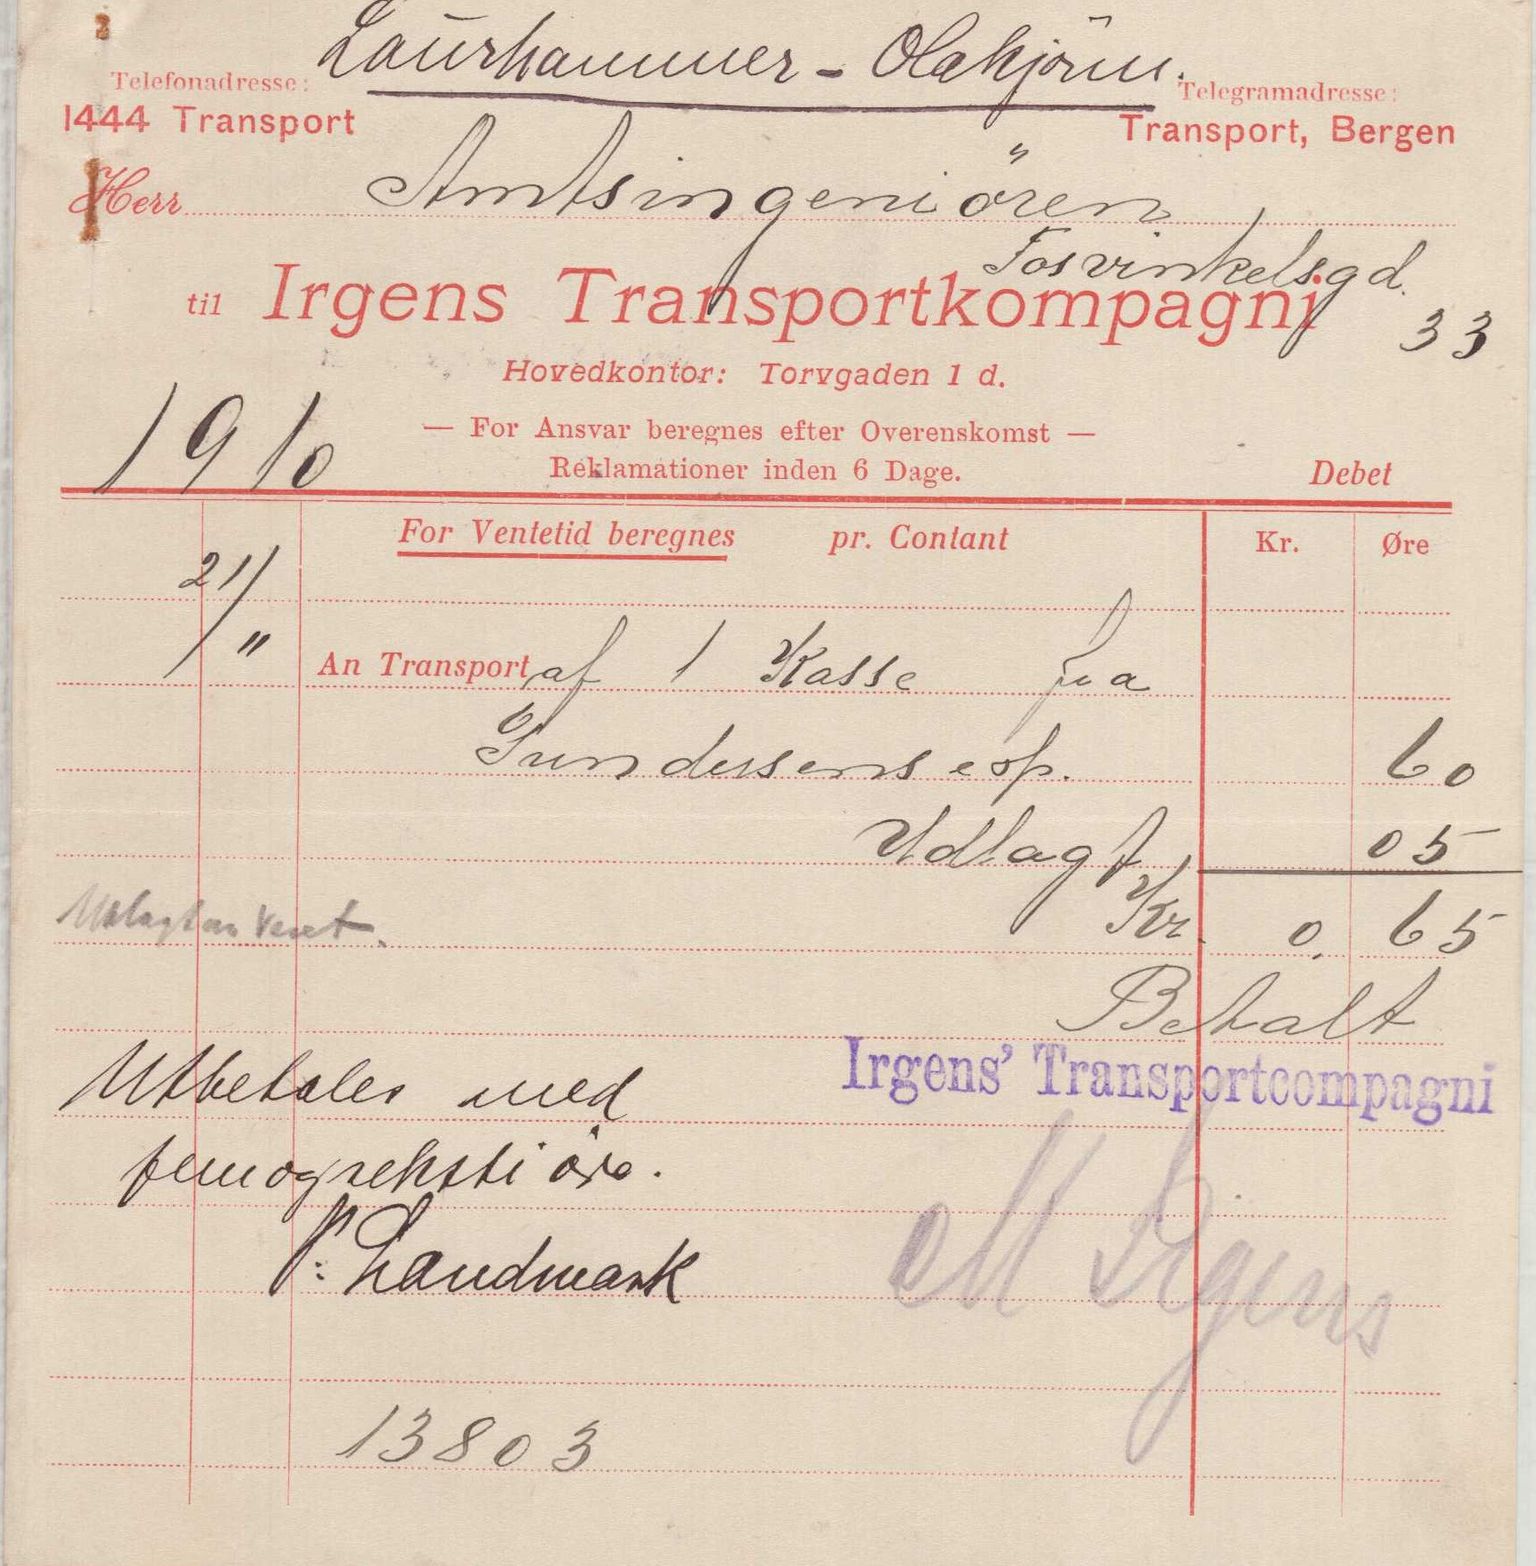 Laurhammer - Olakjönn.
Telefonadresse:
1444 Transport
Telegramadresse:
Transport, Bergen
Herr Amtsingeniören
Fosvinkelsgd.
33
til Irgens Transportkompagni
Hovedkontor: Torvgaden 1 d.
1910
— For Ansvar beregnes efter Overenskomst —
Reklamationer inden 6 Dage.
Debet
For Ventetid beregnes pr. Contant Kr. Øre
21/11
An Transport af 1 Kasse fra
Gundersens exp. 60
Udlagt 05
Kr. 0. 65
Betalt
Irgens' Transportcompagni
Utbetales med
femogseksti øre.
Landmark
M Irgens
13803